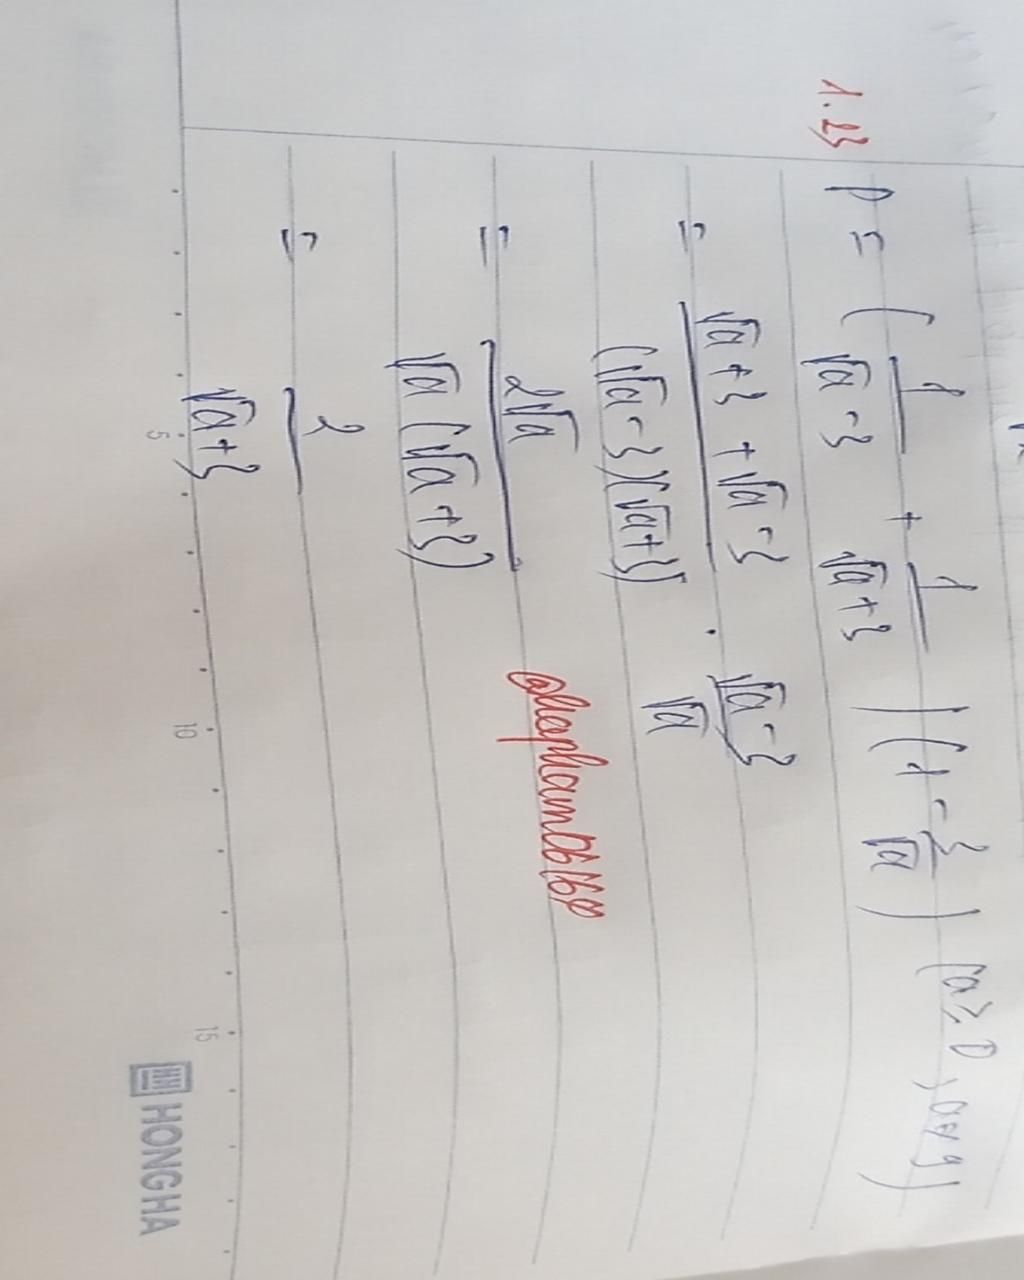 1.23 P = ( 1/(√a - 3) + 1/(√a + 3) ) ( 1 - 3/√a ) (a ≥ 0, a ≠ 9)
= (√a + 3 + √a - 3)/((√a - 3)(√a + 3)) · (√a - 3)/√a
= 2√a/(√a (√a + 3))
= 2/(√a + 3)
5 10 15
HONG HA